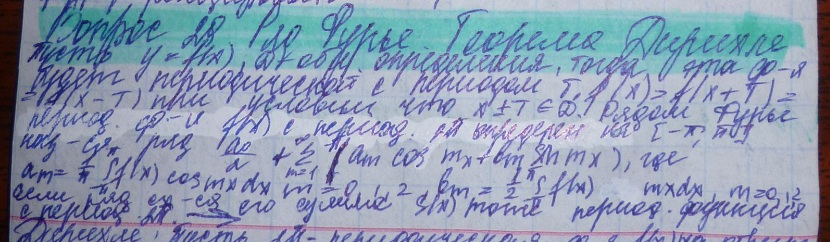 Вопрос 28 Ряд Фурье Теорема Дирихле
пусть y = f(x), D - обл. определения, тогда эта ф-я
будет периодической с периодом T, f(x) = f(x+T) =
= f(x-T) при условии что x ± T ∈ D. Рядом Фурье
период. ф-и f(x) с период. 2π определен на [-π; π]
наз-ся ряд a₀/2 + Σ m=1 (am cos mx + bm sin mx), где
am = 1/π ∫ f(x) cos mx dx m = 0, 1, 2 bm = 1/π ∫ f(x) mx dx, m = 0, 1, 2
если ряд сх-ся его сумма S(x) тоже период. функция
с период 2π
Дирихле пусть 2π - периодическая